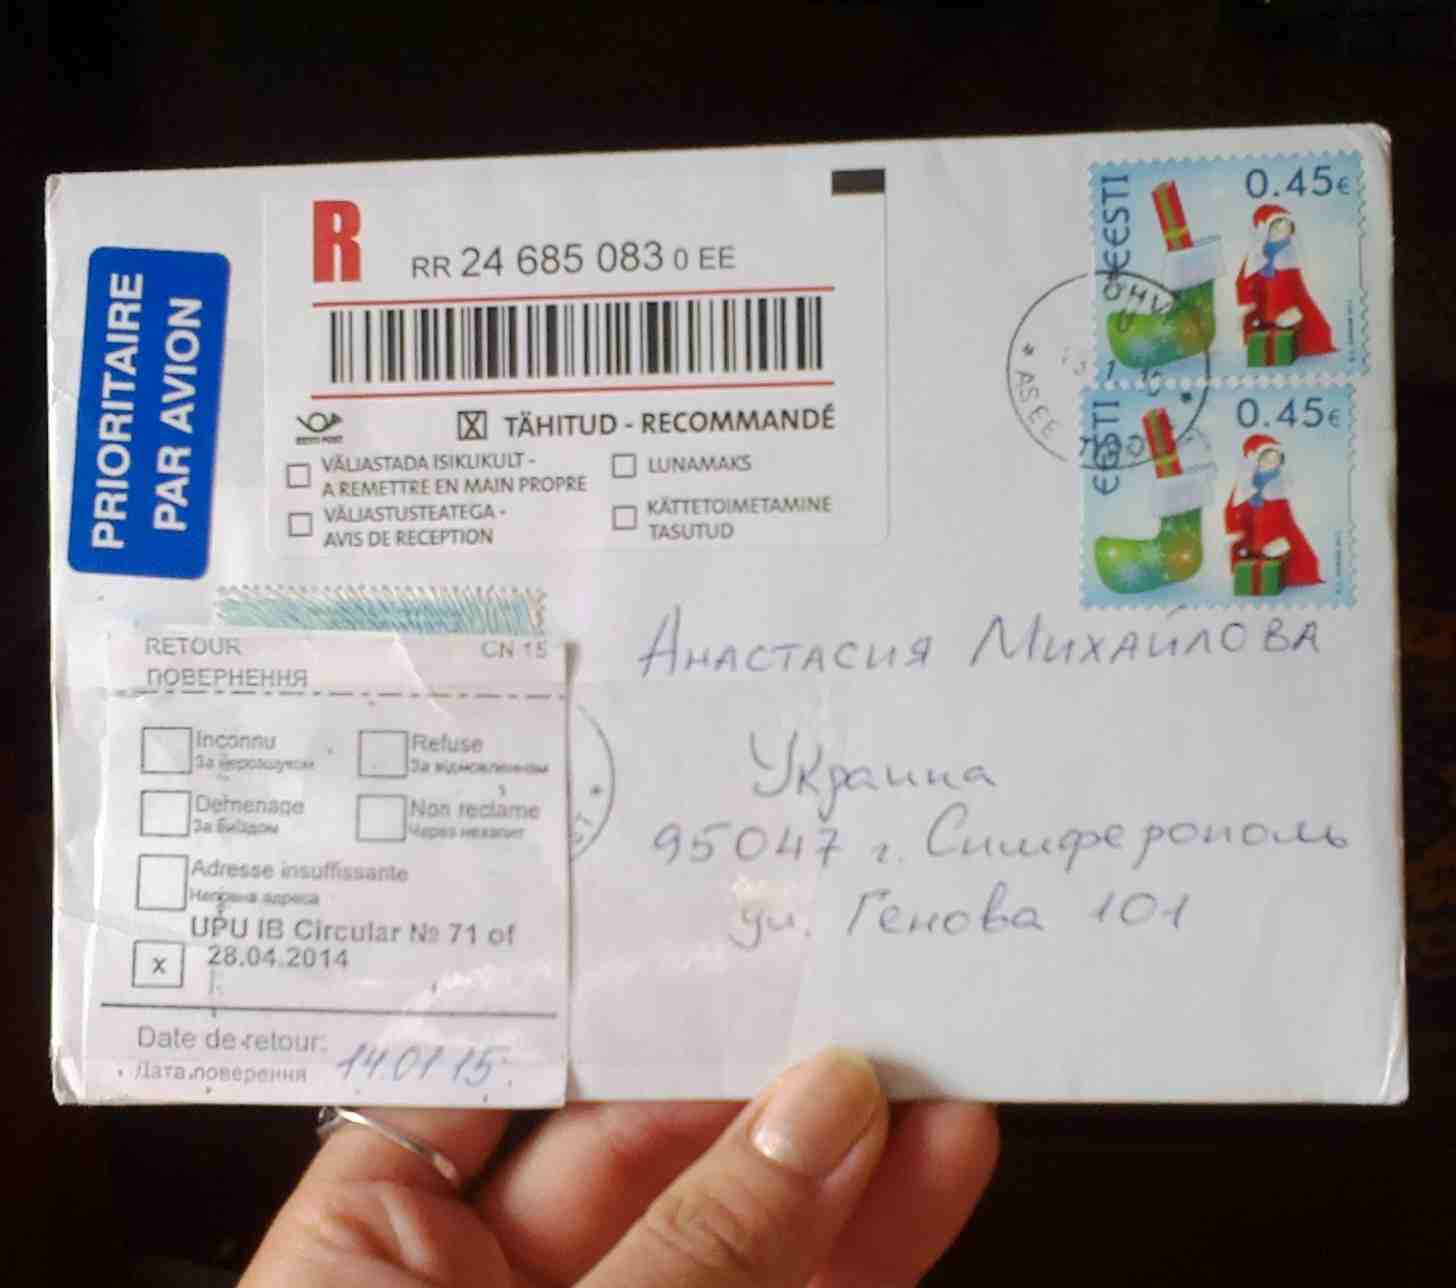 PRIORITAIRE
PAR AVION
R
RR 24 685 083 0 EE
EESTI POST
X TÄHITUD - RECOMMANDÉ
VÄLJASTADA ISIKLIKULT -
A REMETTRE EN MAIN PROPRE
VÄLJASTUSTEATEGA -
AVIS DE RECEPTION
LUNAMAKS
KÄTTETOIMETAMINE
TASUTUD
EESTI 0.45€
EESTI 0.45€
RETOUR CN 15
ПОВЕРНЕННЯ
Inconnu
За розшуком
Refuse
За відмовленням
Demenage
За виїздом
Non reclame
Через незапит
Adresse insuffissante
адреса
UPU IB Circular № 71 of
x 28.04.2014
Date de retour:
Дата поверення 14.01 15
Анастасия Михайлова
Украина
95047 г. Симферополь
ул. Генова 101